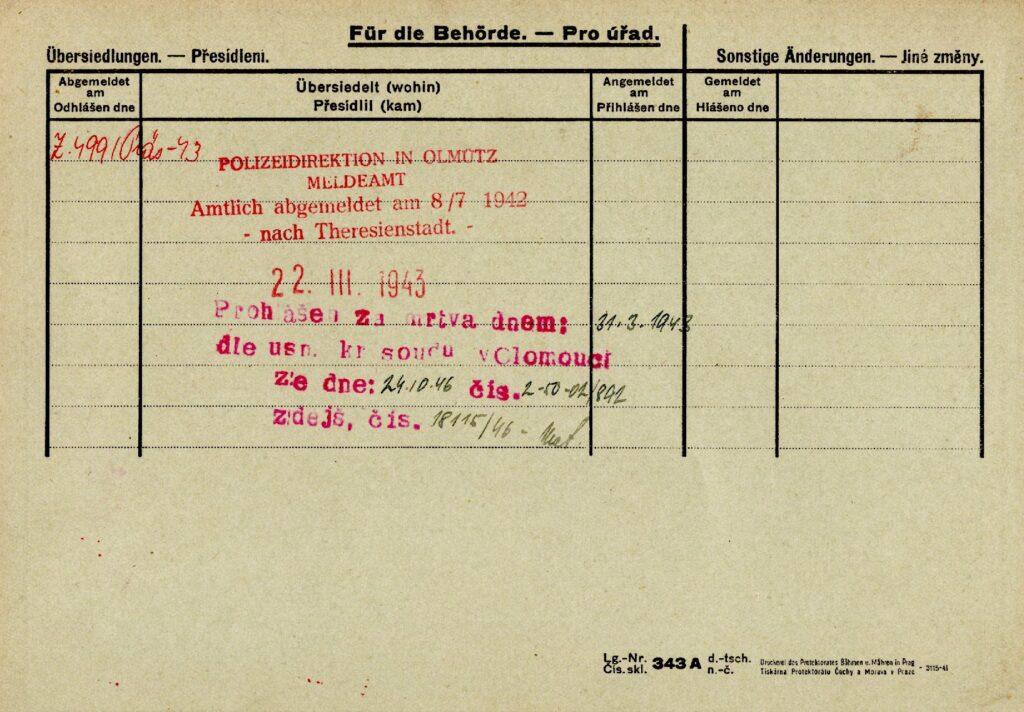 Für die Behörde. — Pro úřad.
Übersiedlungen. — Přesídlení.
Sonstige Änderungen. — Jiné změny.
Abgemeldet
am
Odhlášen dne
Übersiedelt (wohin)
Přesídlil (kam)
Angemeldet
am
Přihlášen dne
Gemeldet
am
Hlášeno dne
Z. 499/Präs-43
POLIZEIDIREKTION IN OLMÜTZ
MELDEAMT
Amtlich abgemeldet am 8/7 1942
- nach Theresienstadt. -
22. III. 1943
Prohlášen za mrtva dnem: 31.3.1943
dle usn. kr soudu v Olomouci
ze dne: 24.10.46 čís.
zdejš. čís. 18115/46 -
Lg.-Nr. 343 A d.-tsch.
Čís. skl. n.-č.
Druckerei des Protektorates Böhmen u. Mähren in Prag
Tiskárna Protektorátu Čechy a Morava v Praze - 3115-41